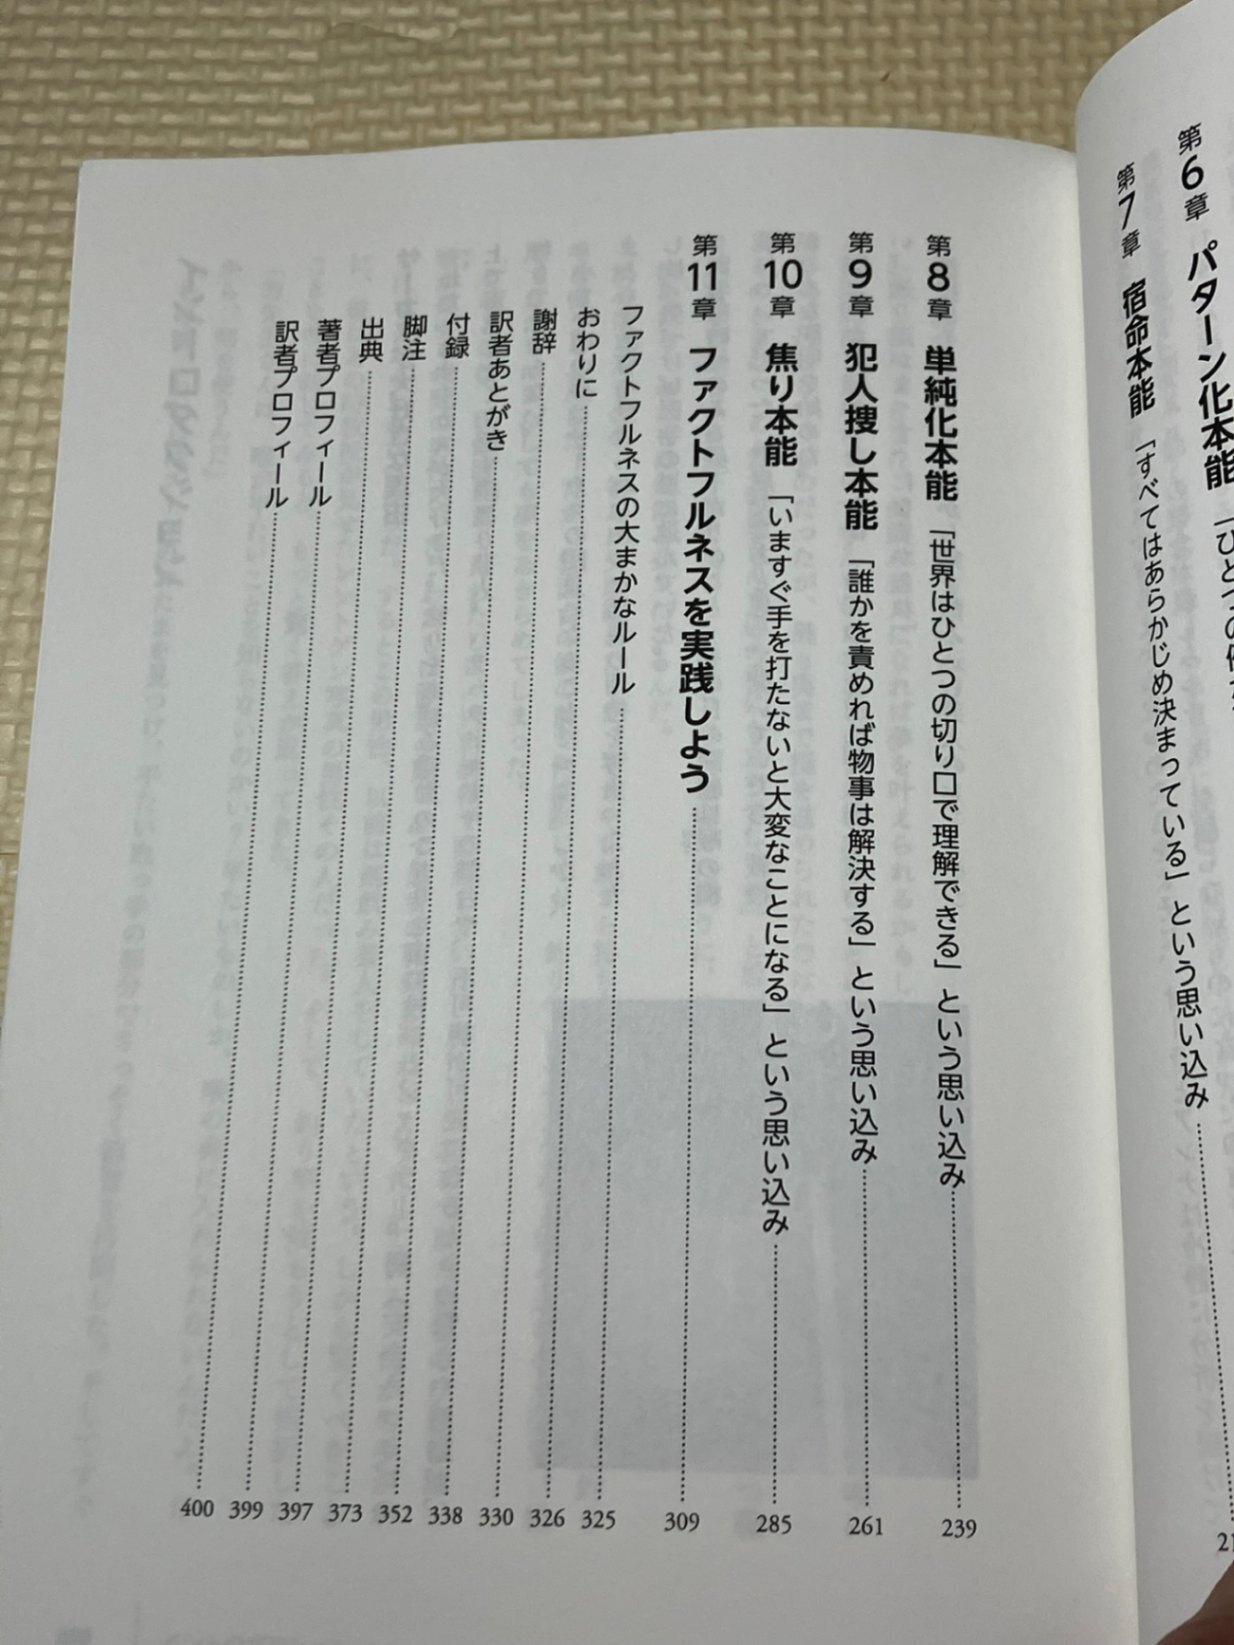 第6章 パターン化本能 「ひとつの
第7章 宿命本能 「すべてはあらかじめ決まっている」という思い込み
第8章 単純化本能 「世界はひとつの切り口で理解できる」という思い込み 239
第9章 犯人捜し本能 「誰かを責めれば物事は解決する」という思い込み 261
第10章 焦り本能 「いますぐ手を打たないと大変なことになる」という思い込み 285
第11章 ファクトフルネスを実践しよう 309
ファクトフルネスの大まかなルール 325
おわりに 326
謝辞 330
訳者あとがき 338
付録 352
脚注 373
出典 397
著者プロフィール 399
訳者プロフィール 400